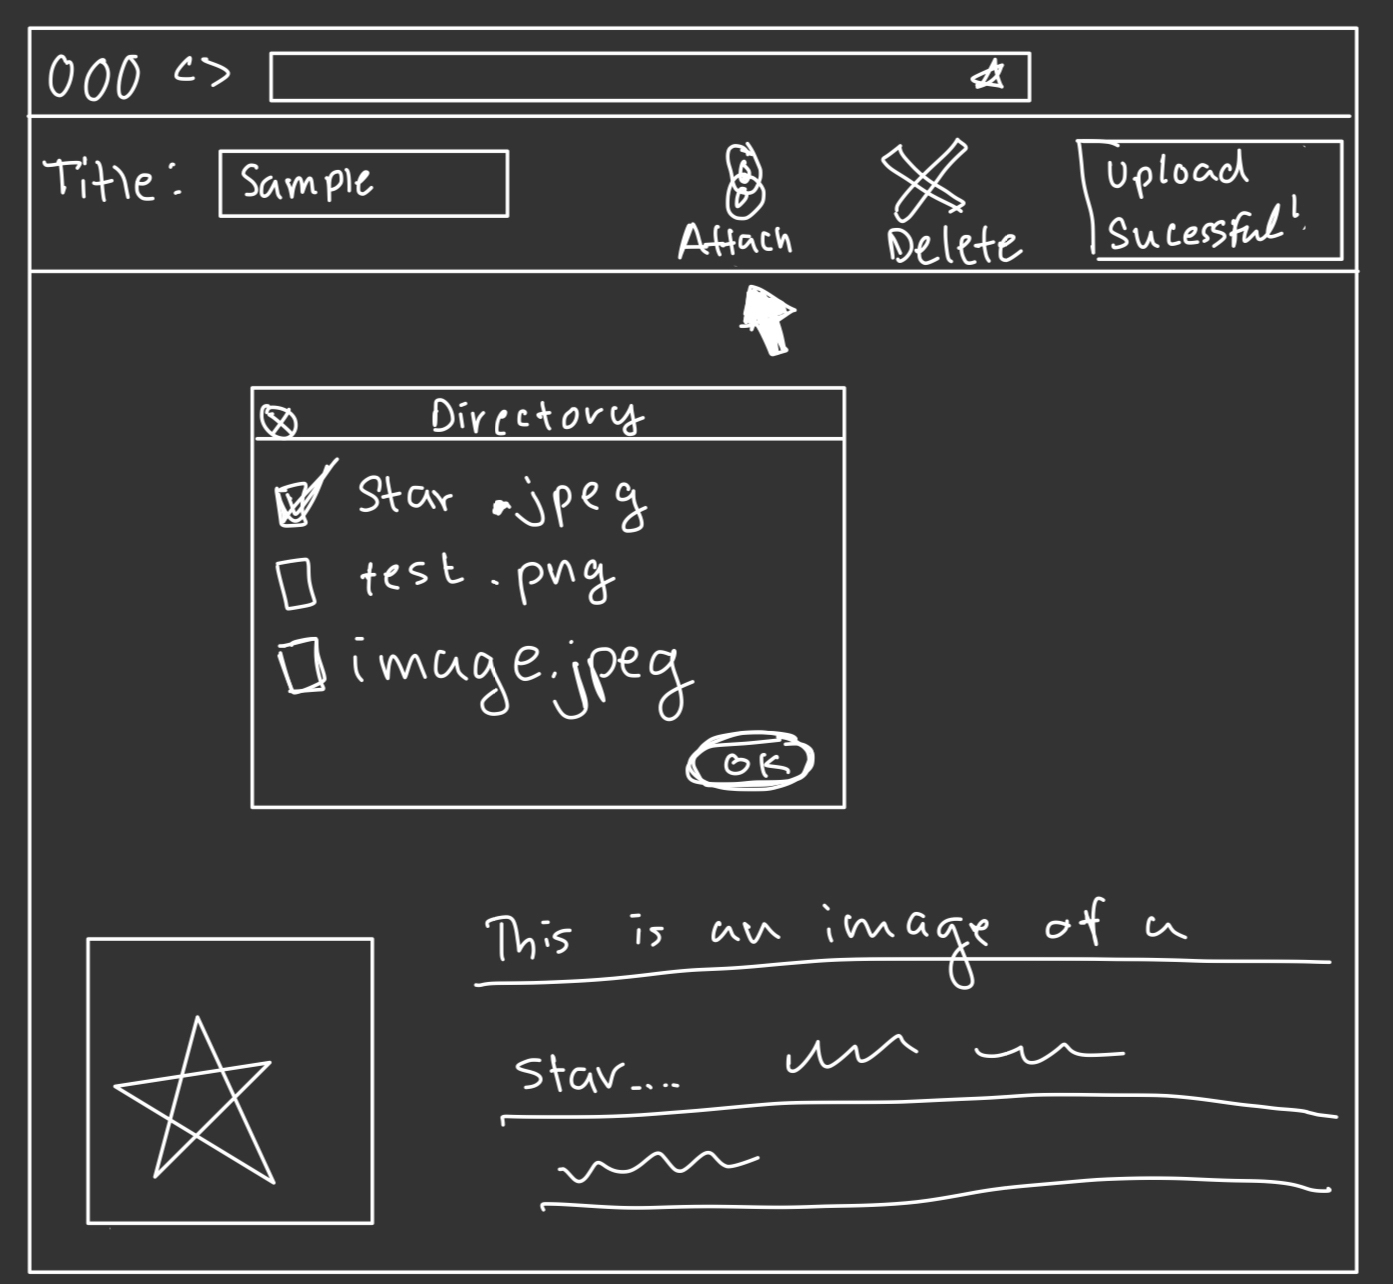 Title: Sample
Attach
Delete
Upload
Sucessful!
Directory
Star .jpeg
test.png
image.jpeg
OK
This is an image of a
Star....